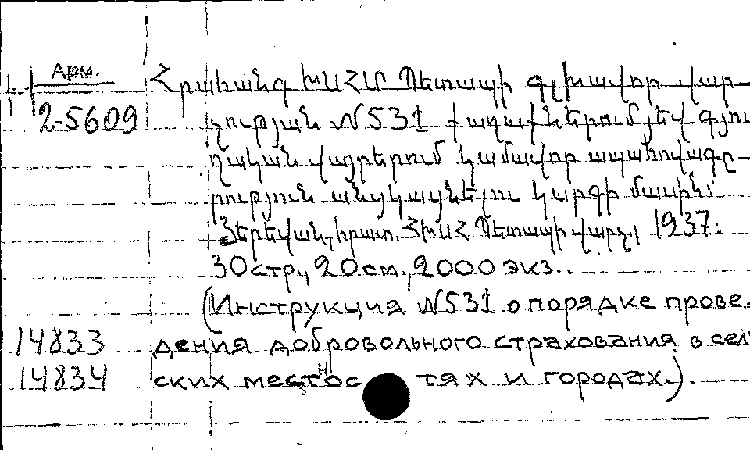 Арм.
2-5609
Հրահանգ ԽՍՀՄ Պետապի գլխավոր վար-
չության N 531 քաղաքներում յեվ գյու
ղական վայրերում կամավոր ապահովագր-
րություն անցկացնելու կարգի մասին:
Յերեվան, հրատ. ՀԽՍՀ Պետապի վարչ., 1937:
30 стр., 20 см., 2000 экз.
(Инструкция N 531 о порядке прове-
14833 дения добровольного страхования в сель
14834 ских местностях и городах.).